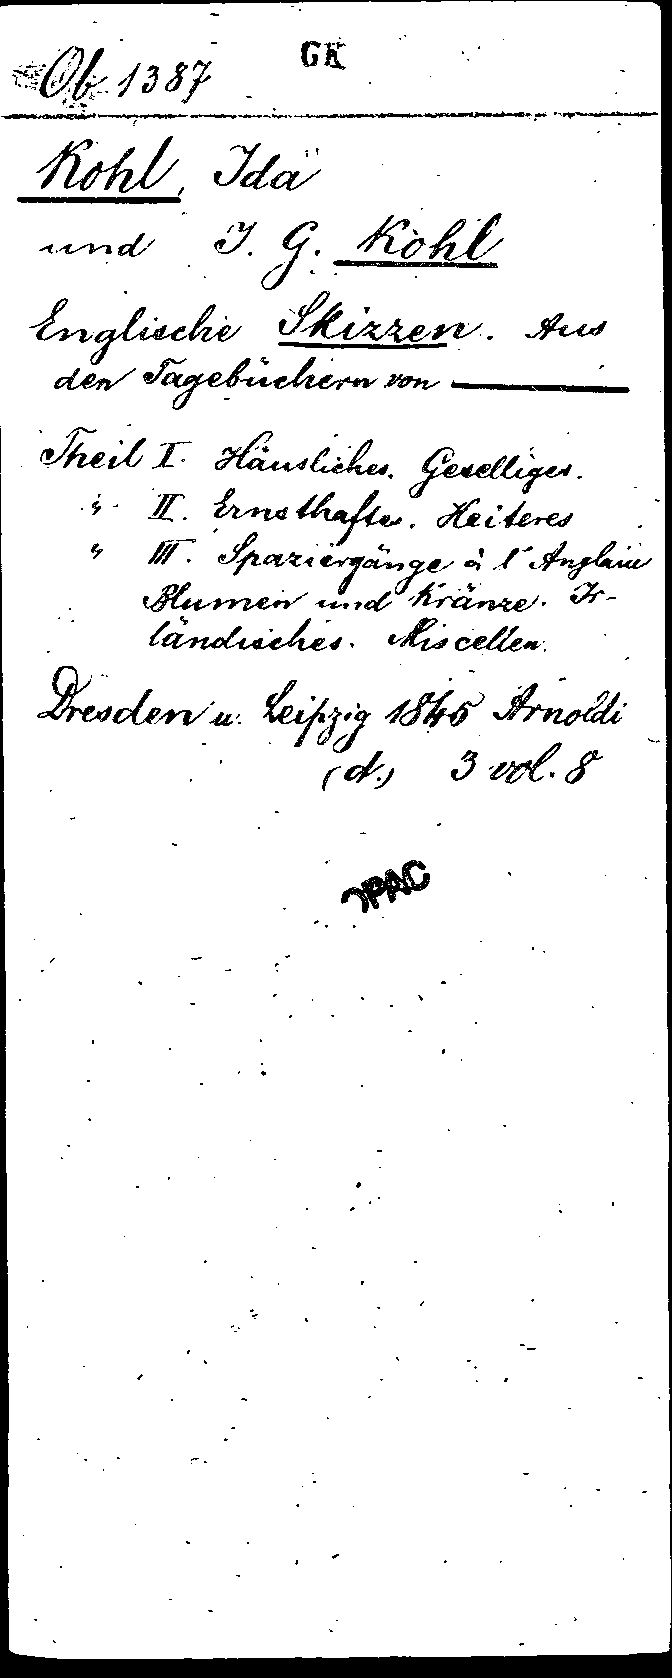 Ob 1387 GK
Kohl, Ida
und J. G. Kohl
Englische Skizzen. Aus
den Tagebüchern von ———
Theil I. Häusliches. Geselliges.
" II. Ernsthaftes. Heiteres
" III. Spaziergänge à l'Anglaise
Blumen und Kränze. Ir-
ländisches. Miscellen.
Dresden u. Leipzig 1845 Arnoldi
(d.) 3 vol. 8
OPAC